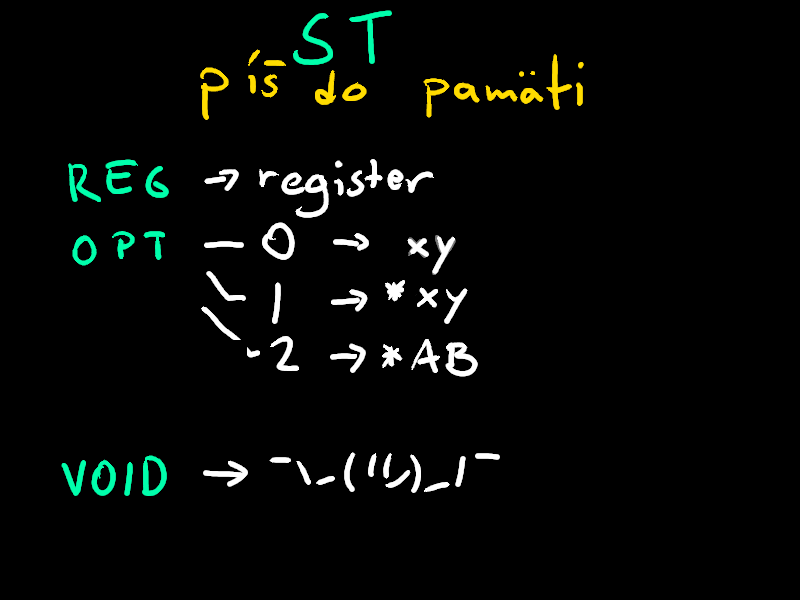 ST
píš do pamäti
REG → register
OPT — 0 → xy
1 → *xy
2 → *AB
VOID → ¯\_(ツ)_/¯